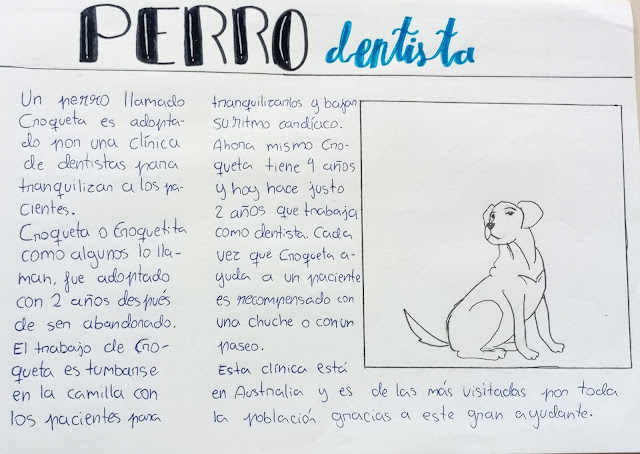 PERRO dentista
Un perro llamado
Croqueta es adopta-
do por una clínica
de dentistas para
tranquilizar a los pa-
cientes.
Croqueta o Croquetita
como algunos lo lla-
man, fue adoptado
con 2 años después
de ser abandonado.
El trabajo de Cro-
queta es tumbarse
en la camilla con
los pacientes para
tranquilizarlos y bajar
su ritmo cardíaco.
Ahora mismo Cro-
queta tiene 4 años
y hoy hace justo
2 años que trabaja
como dentista. Cada
vez que Croqueta a-
yuda a un paciente
es recompensado con
una chuche o con un
paseo.
Esta clínica está
en Australia y es de las más visitadas por toda
la población gracias a este gran ayudante.